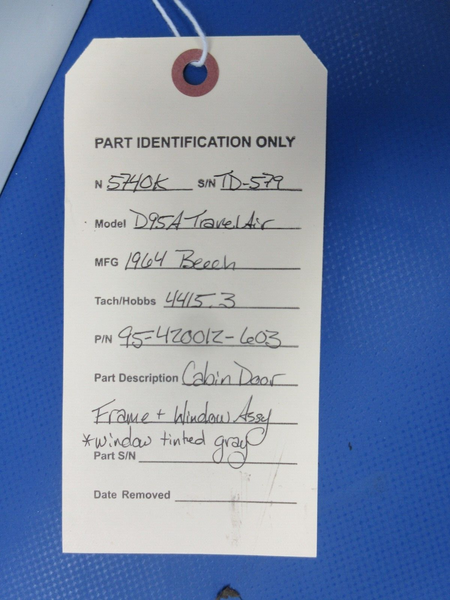 PART IDENTIFICATION ONLY
N 5740K S/N TD-579
Model D95A Travel Air
MFG 1964 Beech
Tach/Hobbs 4415.3
P/N 95-420012-603
Part Description Cabin Door
Frame + Window Assy
*window tinted gray
Part S/N
Date Removed